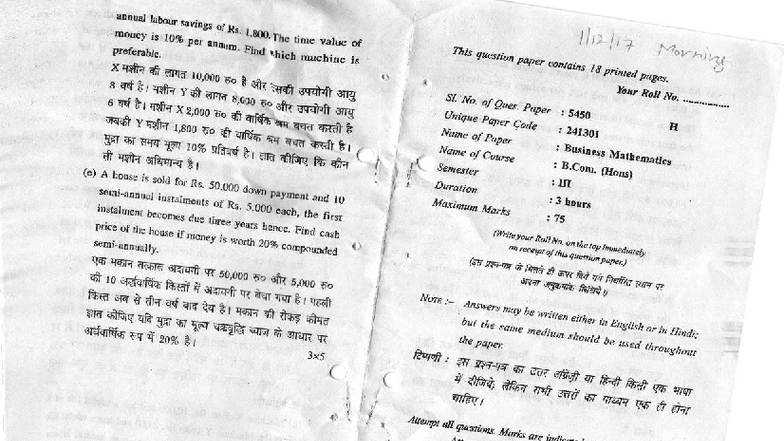 annual labour savings of Rs. 1,800. The time value of
money is 10% per annum. Find which machine is
preferable.
X मशीन की लागत 10,000 रु० है और इसकी उपयोगी आयु
8 वर्ष है। मशीन Y की लागत 8,000 रु० और उपयोगी आयु
6 वर्ष है। मशीन X 2,000 रु० की वार्षिक श्रम बचत करती है
जबकी Y मशीन 1,800 रु० की वार्षिक श्रम बचत करती है।
मुद्रा का समय मूल्य 10% प्रतिवर्ष है। ज्ञात कीजिए कि कौन
सी मशीन अधिमान्य है।
(e) A house is sold for Rs. 50,000 down payment and 10
semi-annual instalments of Rs. 5,000 each, the first
instalment becomes due three years hence. Find cash
price of the house if money is worth 20% compounded
semi-annually.
एक मकान तत्काल अदायगी पर 50,000 रु० और 5,000 रु०
की 10 अर्द्धवार्षिक किस्तों में अदायगी पर बेचा गया है। पहली
किस्त अब से तीन वर्ष बाद देय है। मकान की रोकड़ कीमत
ज्ञात कीजिए यदि मुद्रा का मूल्य चक्रवृद्धि ब्याज के आधार पर
अर्धवार्षिक रूप में 20% है।
3x5
1/12/17 Morning
This question paper contains 18 printed pages.
Your Roll No. ...............
Sl. No. of Ques. Paper : 5450 H
Unique Paper Code : 241301
Name of Paper : Business Mathematics
Name of Course : B.Com. (Hons)
Semester : III
Duration : 3 hours
Maximum Marks : 75
(Write your Roll No. on the top immediately
on receipt of this question paper.)
(इस प्रश्न-पत्र के मिलते ही ऊपर दिये गये निर्धारित स्थान पर
अपना अनुक्रमांक लिखिये।)
NOTE :- Answers may be written either in English or in Hindi;
but the same medium should be used throughout
the paper.
टिप्पणी : इस प्रश्न-पत्र का उत्तर अंग्रेज़ी या हिन्दी किसी एक भाषा
में दीजिये, लेकिन सभी उत्तरों का माध्यम एक ही होना
चाहिए।
Attempt all questions. Marks are